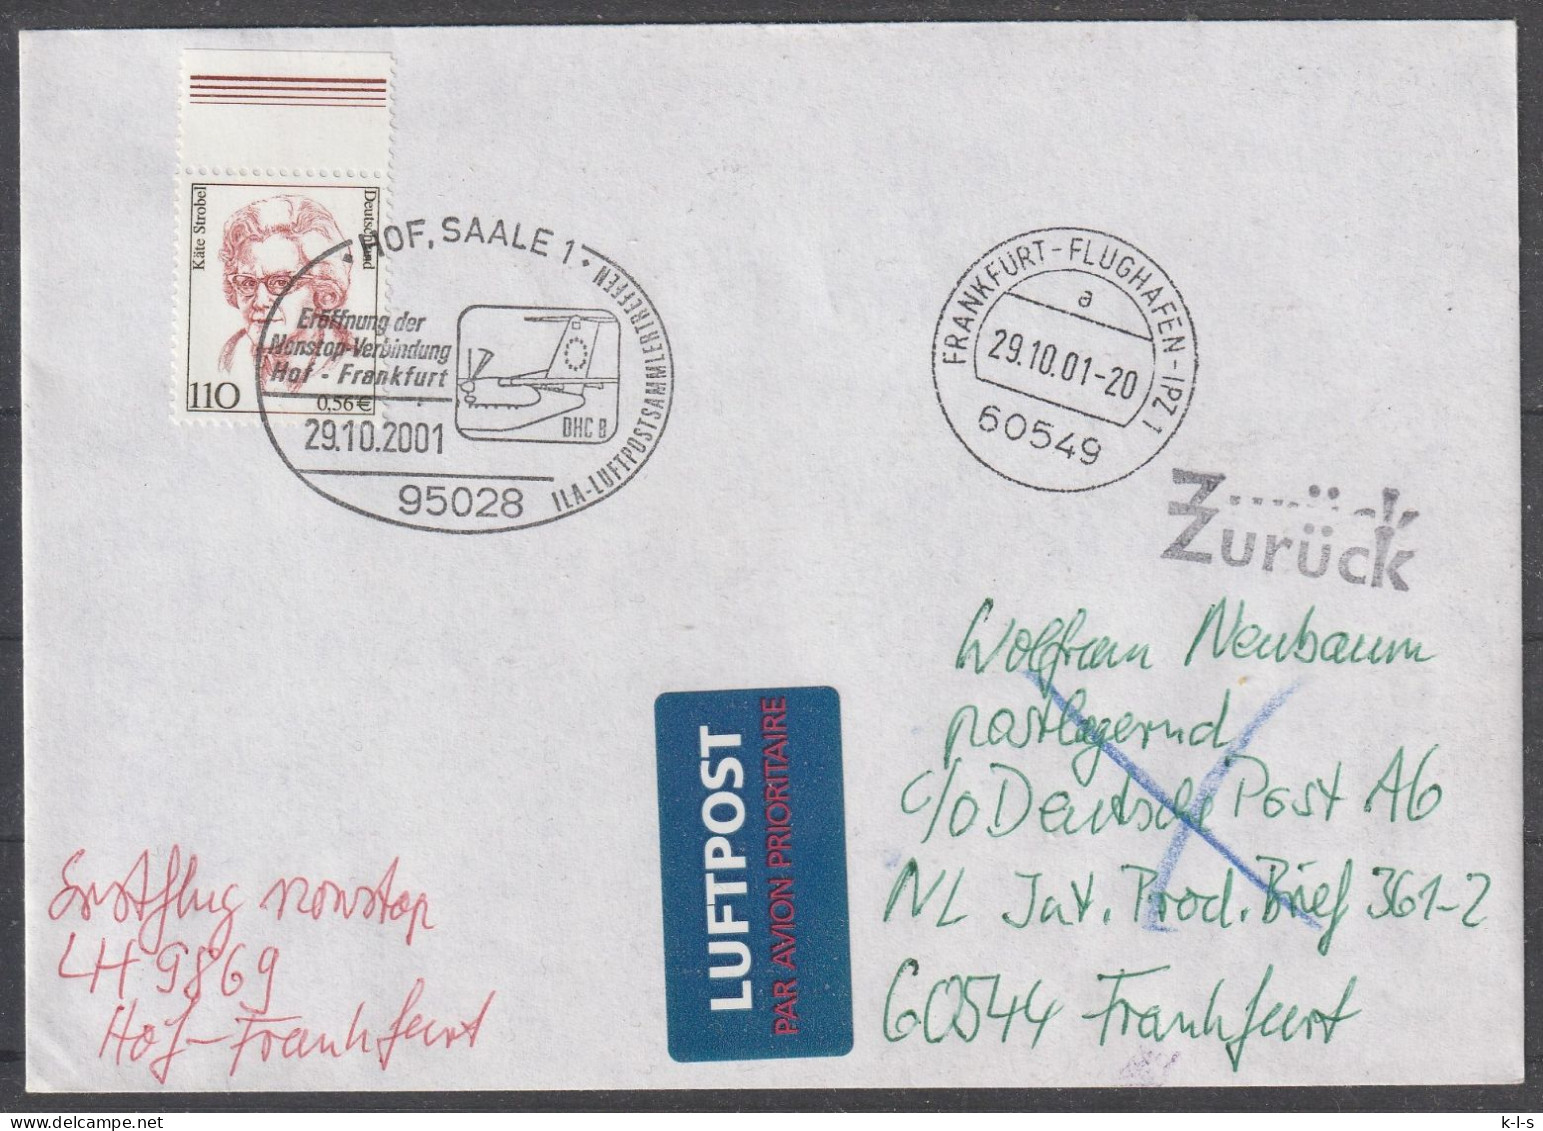 Käte Strobel
Deutschland
110
0,56€
• HOF, SAALE 1 •
Eröffnung der
Nonstop-Verbindung
Hof - Frankfurt
29.10.2001
95028
DHC 8
ILA-LUFTPOSTSAMMLERTREFFEN
FRANKFURT-FLUGHAFEN-IPZ 1
a
29.10.01-20
60549
Zurück
Zurück
Wolfram Neubaum
postlagernd
c/o Deutsche Post AG
NL Int. Prod. Brief 361-2
60544 Frankfurt
LUFTPOST
PAR AVION PRIORITAIRE
Erstflug nonstop
LH 9869
Hof-Frankfurt
www.delcampe.net
k-l-s